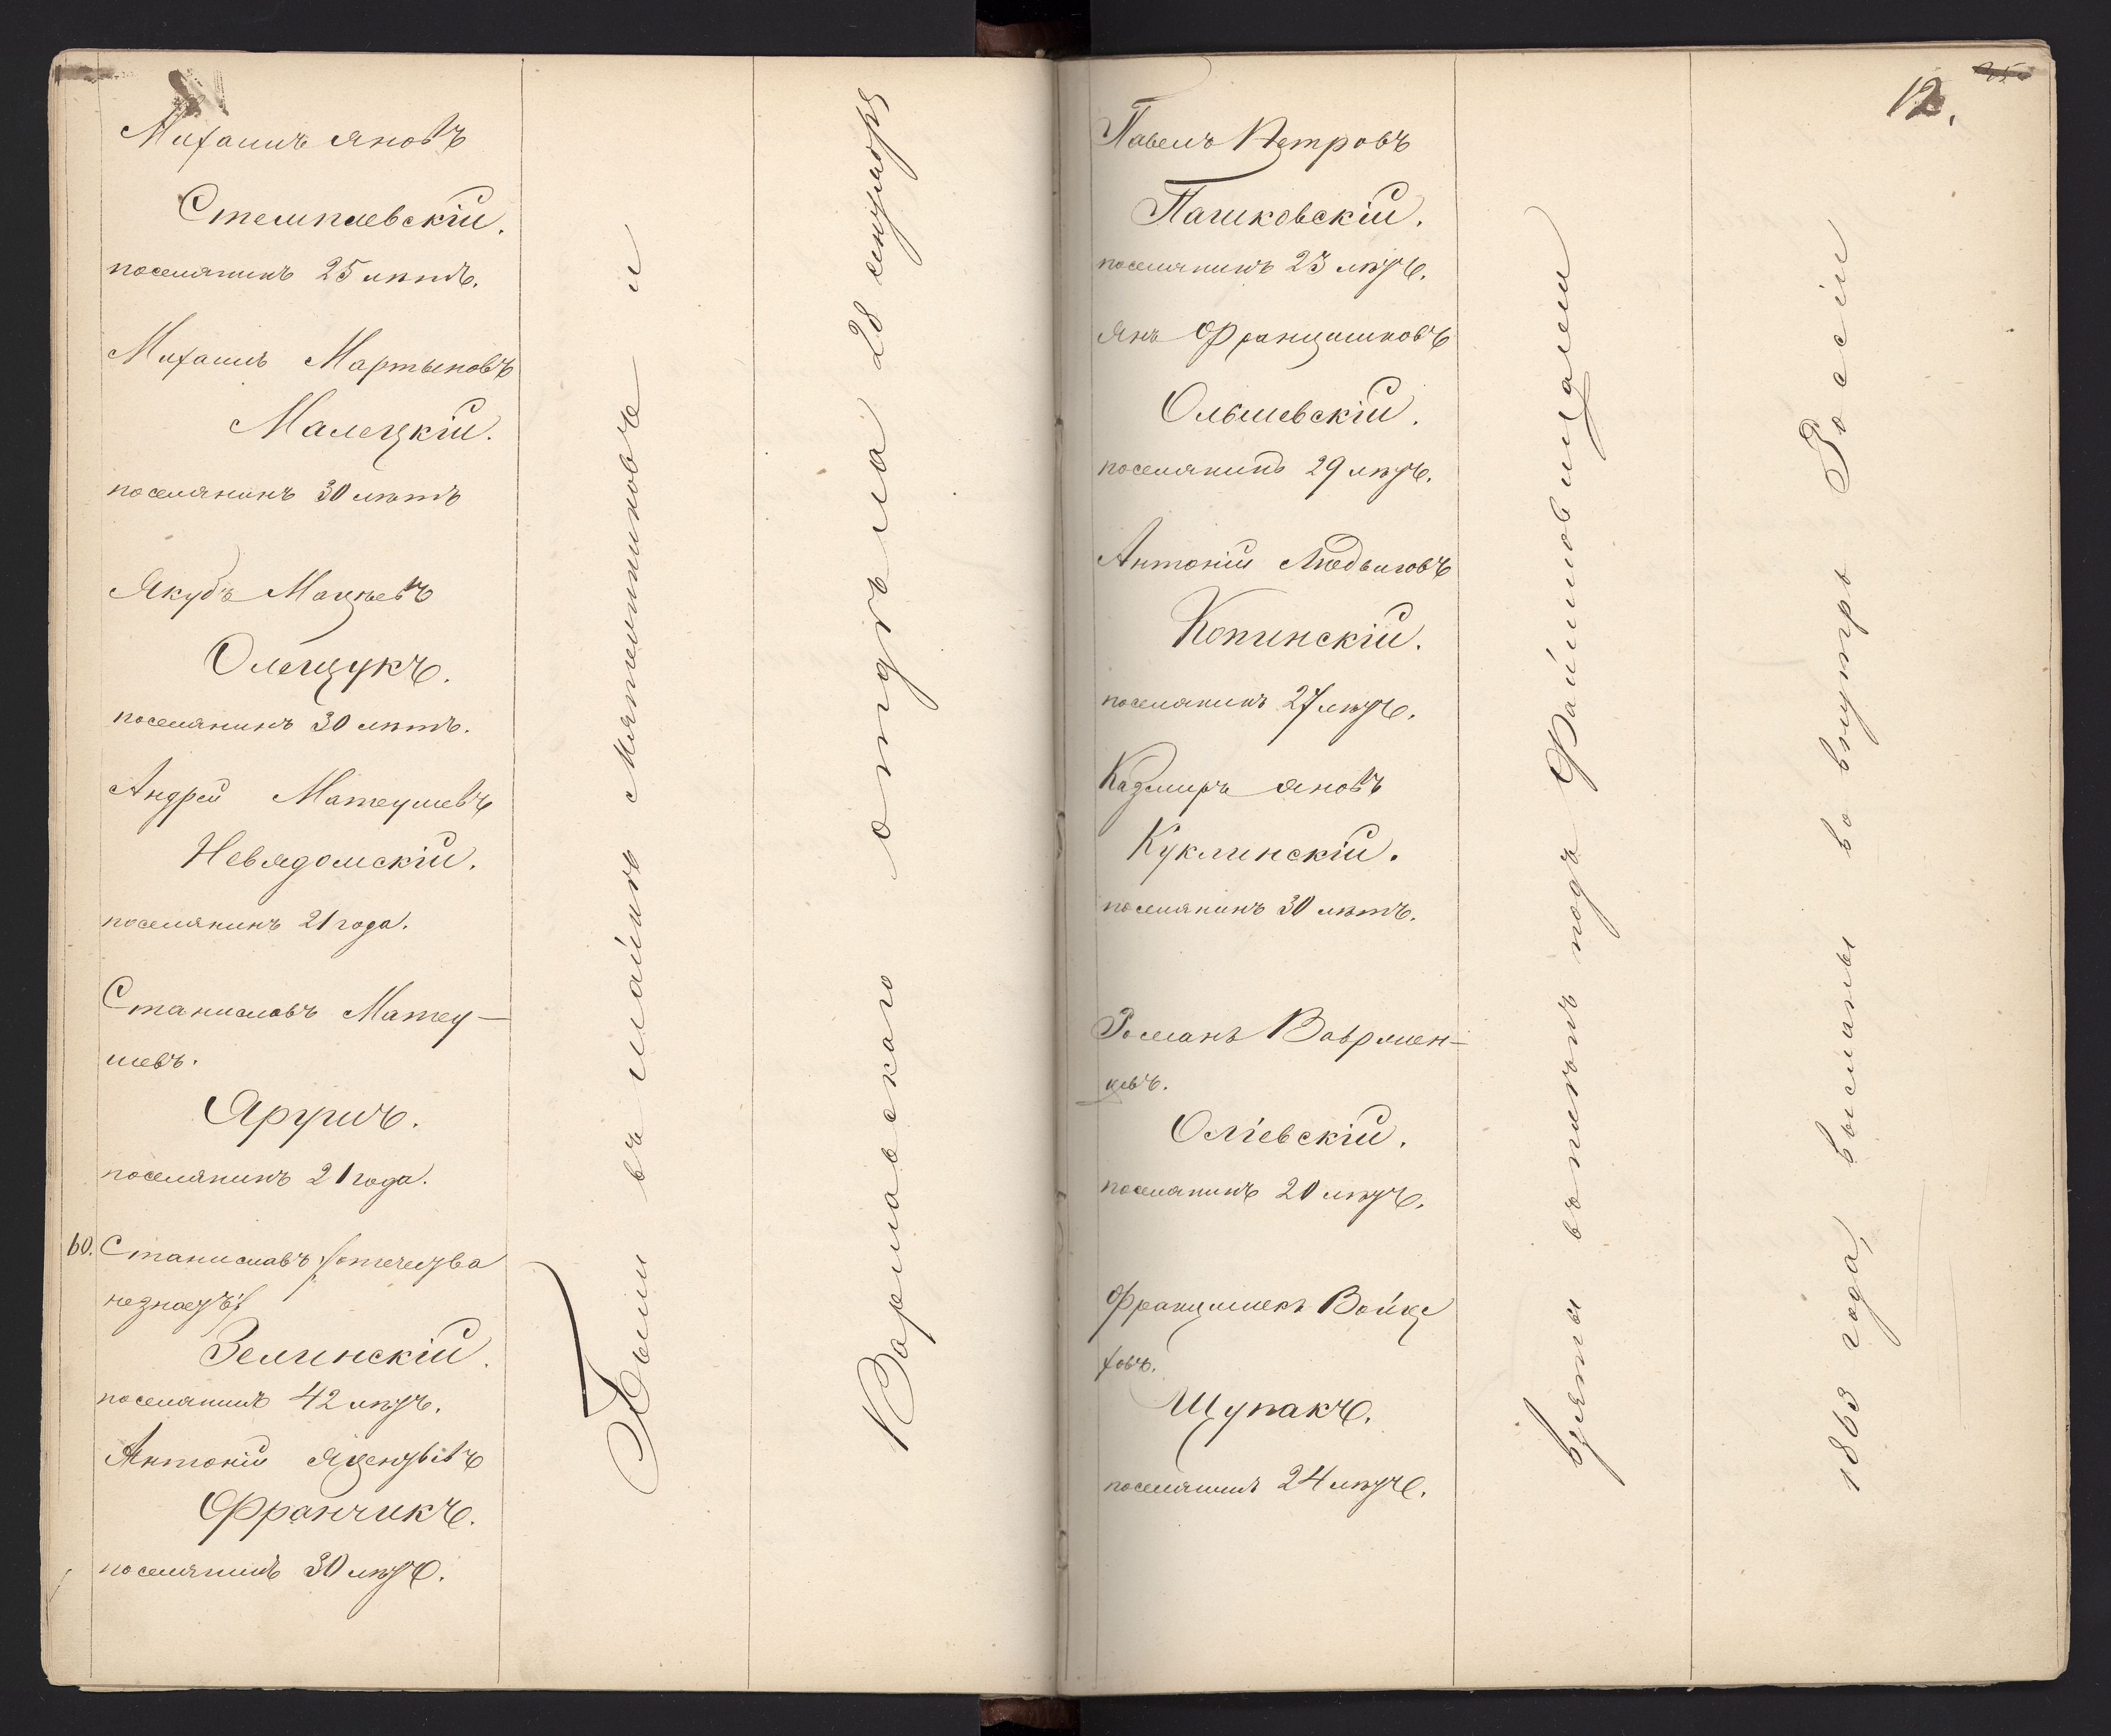 Михаилъ Яновъ
Стемплевскій.
поселянинъ 25 лѣтъ.
Михаилъ Мартыновъ
Малецкій.
поселянинъ 30 лѣтъ
Якубъ Мацѣевъ
Олещукъ.
поселянинъ 30 лѣтъ.
Андрей Матеушевъ
Невядомскій.
поселянинъ 21 года.
Станиславъ Матеу-
шевъ.
Яругъ.
поселянинъ 21 года.
60. Станиславъ (отечества
не знаетъ)
Зелинскій.
поселянинъ 42 лѣтъ.
Антоній
Франчикъ.
поселянинъ 30 лѣтъ.
Были въ шайкѣ Мятежниковъ и
Варшавскаго отдѣла 28 сентября
12.
Павелъ Петровъ
Пашковскій.
поселянинъ 23 лѣтъ.
Янъ Францишковъ
Ольшевскій.
поселянинъ 29 лѣтъ.
Антоній Людвиговъ
Копинскій.
поселянинъ 27 лѣтъ.
Казмиръ Яновъ
Куклинскій.
поселянинъ 30 лѣтъ.
Романъ Вавржен-
цевъ.
Олiевскій.
поселянинъ 20 лѣтъ.
Францишекъ Войце
ховъ.
Щупакъ.
поселянинъ 24 лѣтъ.
взяты въ плѣнъ подъ
1863 года, высланы во внутрь Росіи